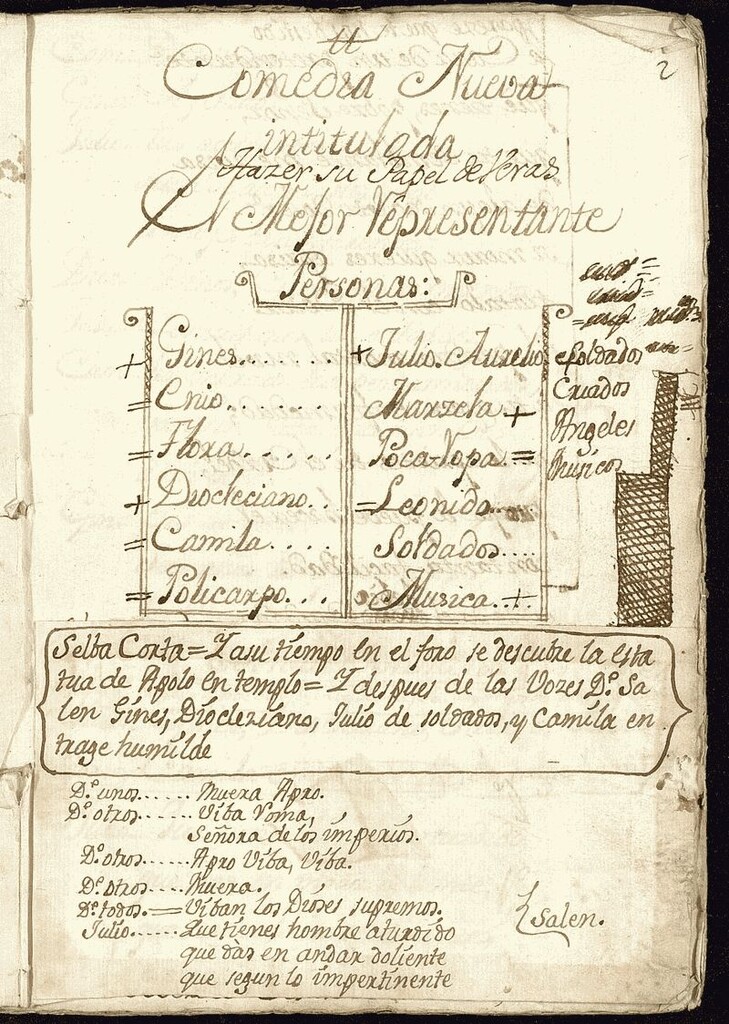 2
Comedia Nueva
intitulada
Hazer su Papel de Veras
El Mejor Representante
Personas:
+ Gines........ + Julio Aurelio
= Enio........ Marzela +
= Flora....... Poca Ropa =
+ Diocleciano.. = Leonido....
= Camila.... Soldados....
= Policarpo... Musica..+.
Soldados
Criados
Angeles
Musicos
Selba Corta = Y a su tiempo en el foro se descubre la esta
tua de Apolo en templo = Y despues de las Vozes Do. Sa
len Gines, Diocleziano, Julio de soldados, y Camila en
trage humilde
Do. unos...... Muera Apro.
Do. otros...... Viba Roma,
Señora de los imperios.
Do. otros...... Apro Viba, Viba.
Do. otros..... Muera.
Do. todos.== Viban los Dioses supremos.
Salen.
Julio...... Que tienes hombre aturdido
que dàs en andar doliente
que segun lo impertinente